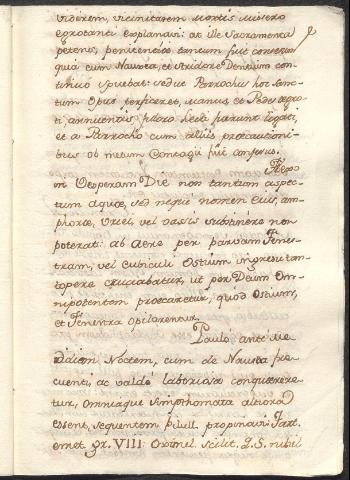 viderem, vicinitatem Mortis misero
egrotanti explanavi: at ille Sacramenta
petens, penitentiae tantum fuit conversus
quia cum Nausea, et Stridore Dentium con-
tinuo spuebat: sed ut Parrochus hoc Sanc-
tum Opus perficeret, Manus, et Pedes aegro-
ti, annuentis filtro herla fuerunt ligati,
et a Parrocho cum aliis praecautioni-
bus ob metum Contagii fuit confessus.
Aegro
in Vesperam Die non tantum aspec-
tum aquae, sed neque nomen Eius, am-
phorae, Urcei, vel vassis substinere non
poterat: ab Aere per parvam Fenes-
tram, vel Cubiculi Ostium ingresu tan-
topere cruciabatur, ut per Deum Om-
nipotentem praecaretur, quod Ostium,
et Fenestra opilarentur.
Paulo ante Me
diam Noctem, cum de Nausea fre
cuenti, ac valde laboriosa conquerere-
tur, Omniaque Simpthomata altiora
essent, sequentem pilull. propinavi: Tart.
emet. gr. VIII: Oximel scilit. Q. S. nihil